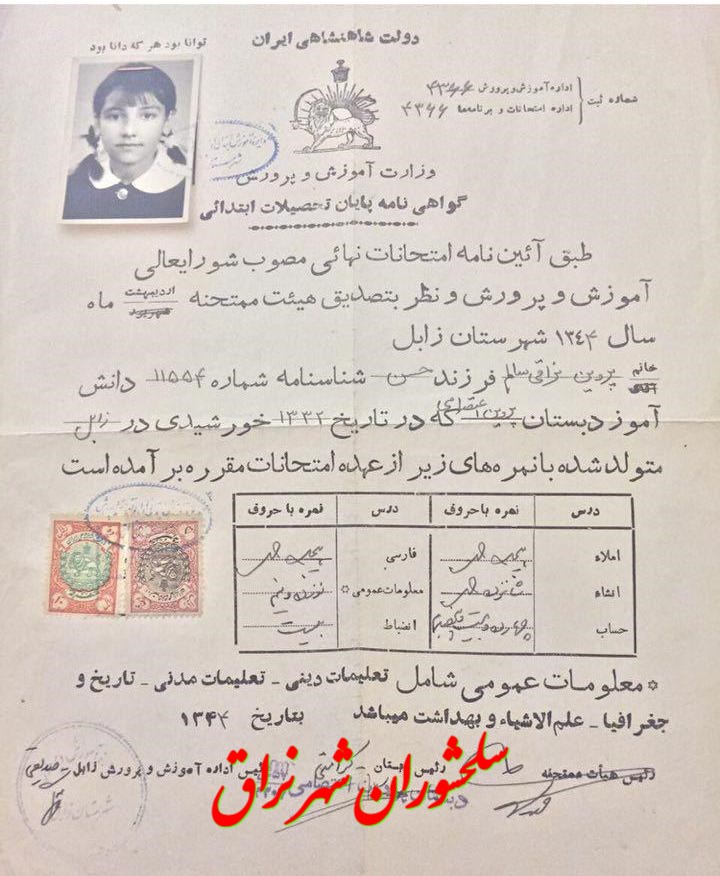 توانا بود هر که دانا بود
دولت شاهنشاهی ایران
شماره ثبت
اداره آموزش و پرورش ۴۳۶۶
اداره امتحانات و برنامه‌ها ۴۳۶۶
وزارت آموزش و پرورش
گواهی نامه پایان تحصیلات ابتدائی
طبق آئین نامه امتحانات نهائی مصوب شورایعالی
آموزش و پرورش و نظر بتصدیق هیئت ممتحنه اردیبهشت ماه
سال ۱۳۴۴ شهرستان زابل
خانم پروین نراقی سالم فرزند حسن شناسنامه شماره ۱۱۵۵۴ دانش
آموز دبستان پروین اعتصامی که در تاریخ ۱۳۳۲ خورشیدی در زابل
متولد شده با نمره‌های زیر از عهده امتحانات مقرره برآمده است
درس نمره با حروف درس نمره با حروف
املاء فارسی
انشاء معلومات عمومی* نوزده و نیم
حساب انضباط بیست
* معلومات عمومی شامل تعلیمات دینی - تعلیمات مدنی - تاریخ و
جغرافیا - علم‌الاشیاء و بهداشت میباشد بتاریخ ۱۳۴۴
رئیس هیأت ممتحنه رئیس دبستان - رئیس اداره آموزش و پرورش زابل
سلحشوران شهر نراق